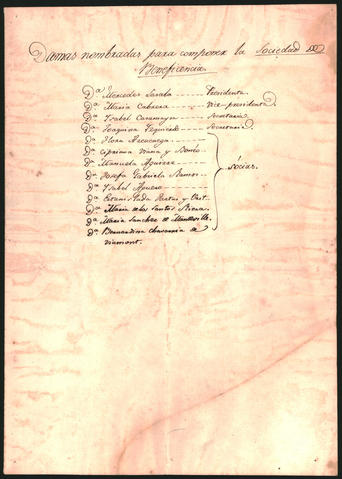 Damas nombradas para componer la Sociedad de
Beneficencia.
Da Mercedes Lasala Presidenta
Da Maria Cabrera Vice-presidenta
Da Ysabel Casamayor Secretaria
Da Joaquina Yzquierdo Secretaria.
Da Flora Azcuenaga
Da Cipriana Viana y Bonlo
Da Manuela Aguirre
Da Josefa Gabriela Ramos
Da Ysabel Aguero
Da Estanislada y
Da Maria de los Santos
Da Maria Sanchez de Mandeville
Da Bernardina Chavarria de
Viamont.
sócias.